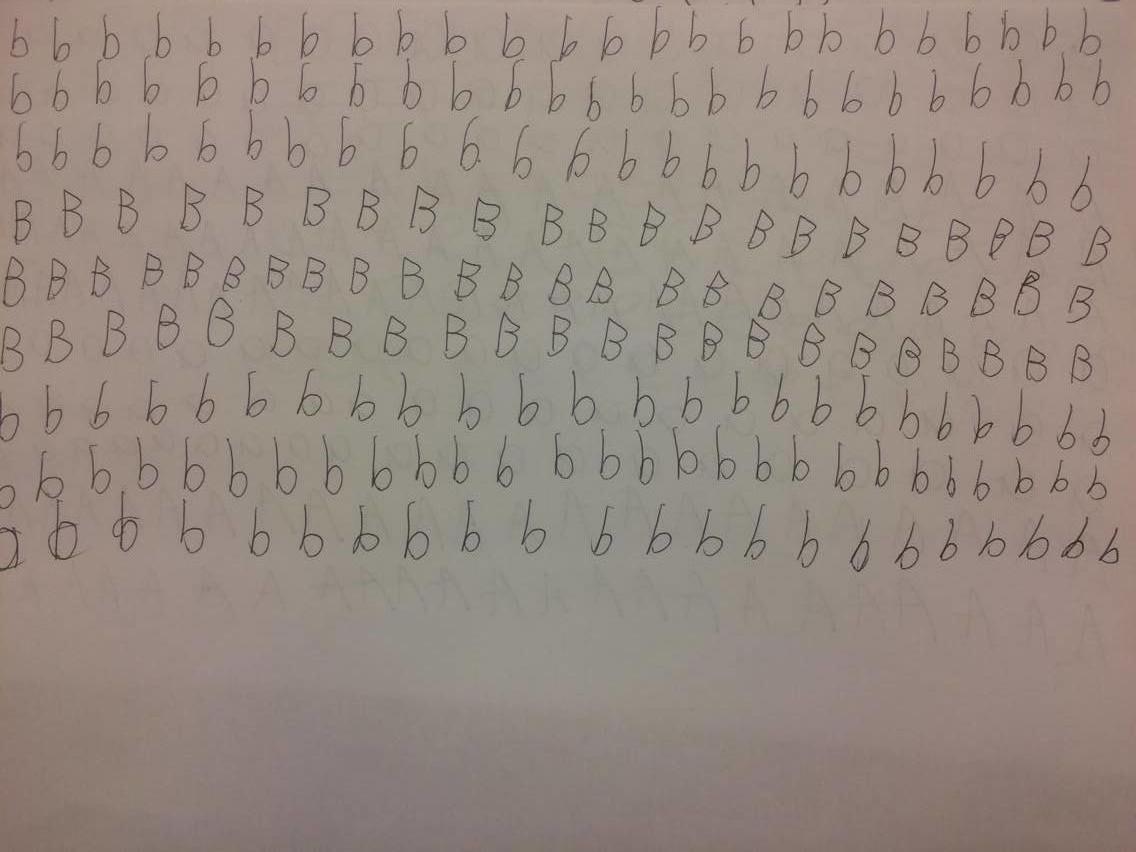 b b b b b b b b b b b b b b b b b b b b b b b b
b b b b b b b b b b b b b b b b b b b b b b b b b
b b b b b b b b b b b b b b b b b b b b b b b
B B B B B B B B B B B B B B B B B B B B B
B B B B B B B B B B B B B B B B B B B B B B B
B B B B B B B B B B B B B B B B B B B B B B
b b b b b b b b b b b b b b b b b b b b b b b
b b b b b b b b b b b b b b b b b b b b b b b b b
b b b b b b b b b b b b b b b b b b b b b b